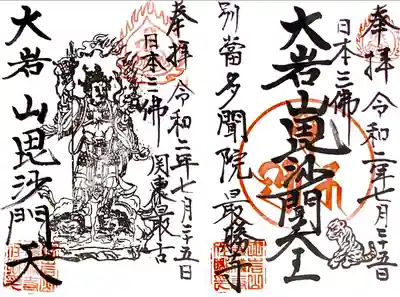 奉拝 令和二年七月二十五日
日本三佛
大岩山毘沙門天王
別當 多聞院最勝寺
奉拝 令和二年七月二十五日
日本三佛 関東最古
大岩山毘沙門天